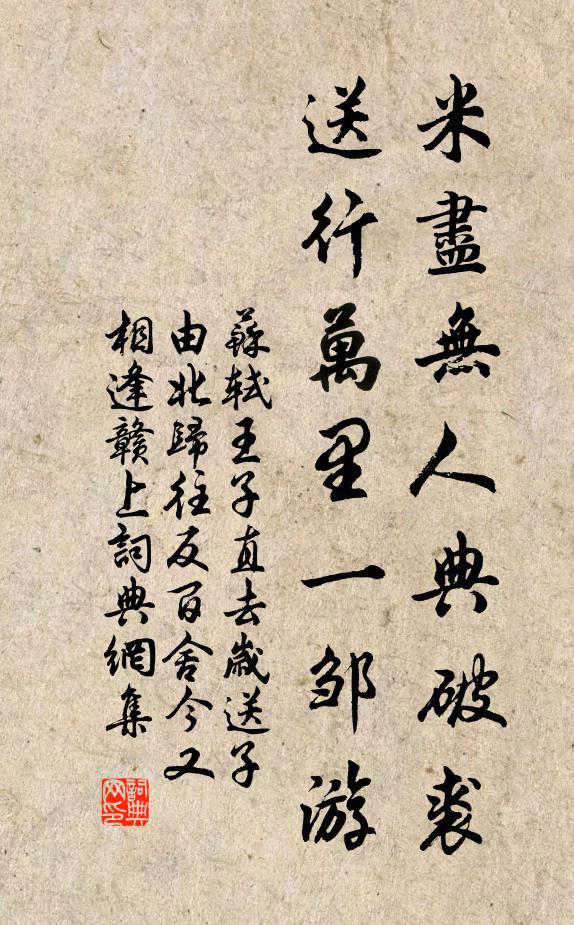 米盡無人典破裘
送行萬里一邹游
蘇軾王子直去歲送子
由北歸往反百舍今又
相逢贛上詞典網集
詞典网印